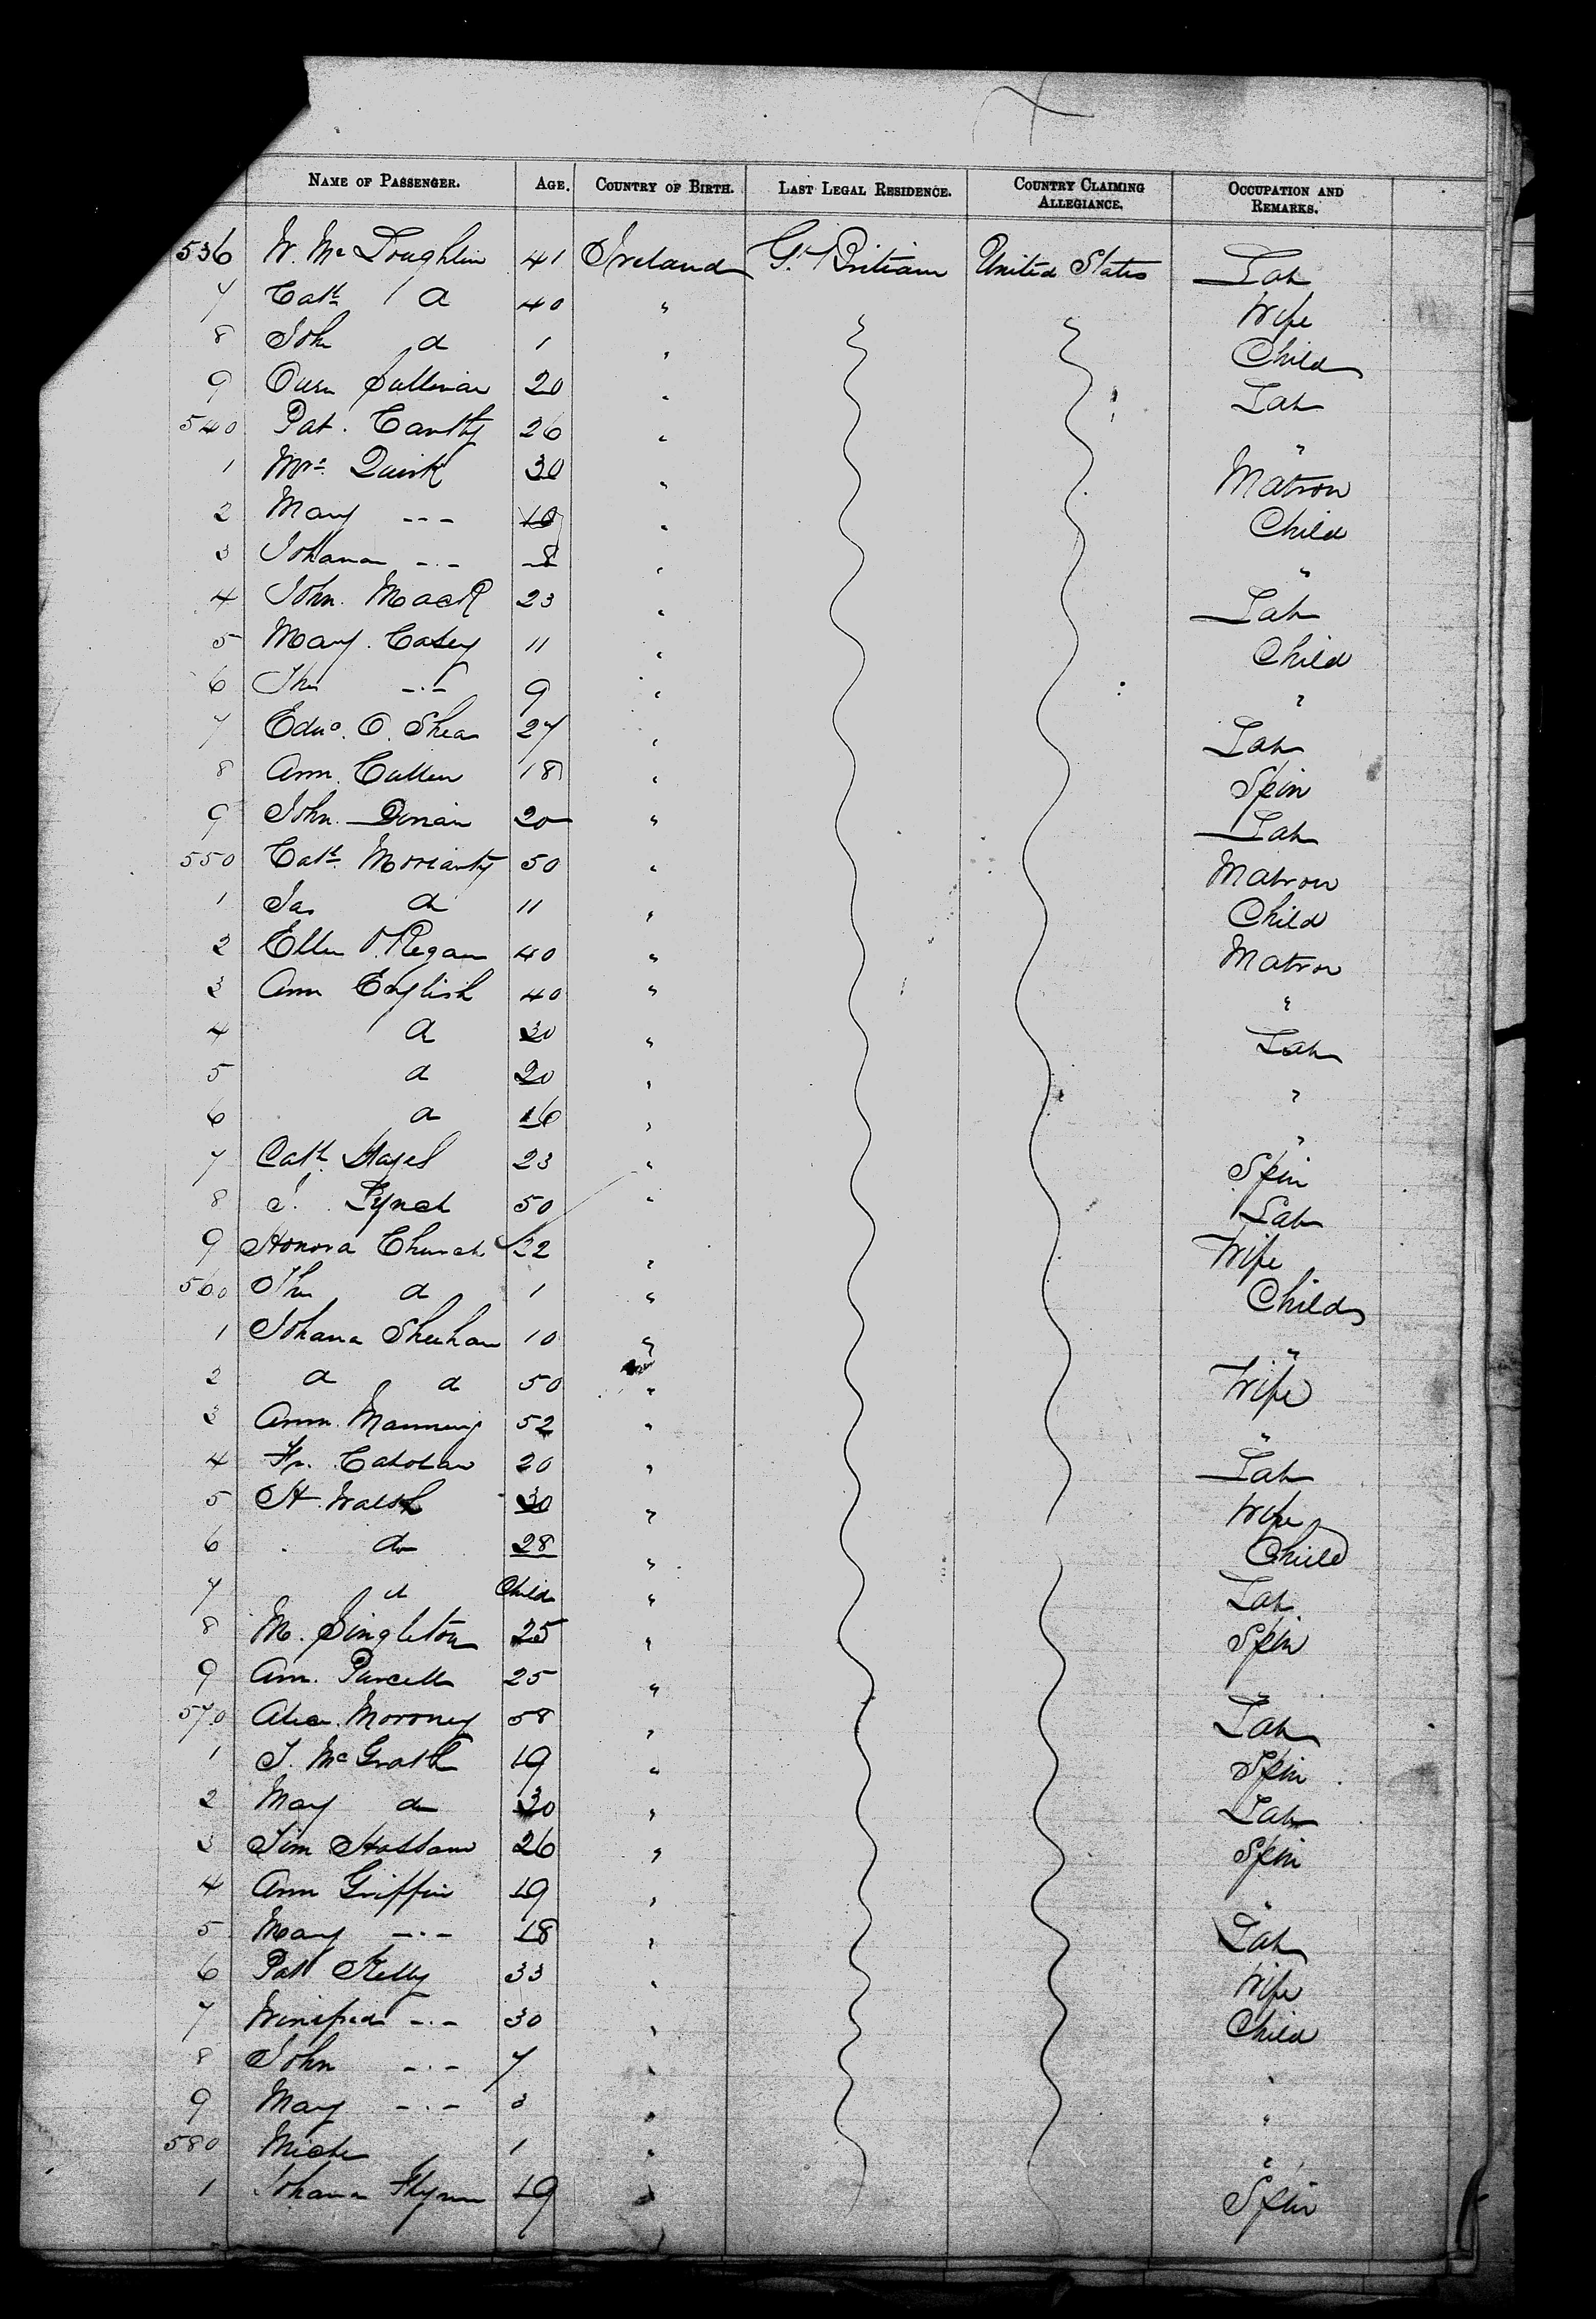 NAME OF PASSENGER. AGE. COUNTRY OF BIRTH. LAST LEGAL RESIDENCE. COUNTRY CLAIMING ALLEGIANCE. OCCUPATION AND REMARKS.
536 W. Mc Loughlin 41 Ireland Gt. Britian United States Lab
7 Cath d 40 " Wife
8 John d 1 " Child
9 Owen Sullivan 20 " Lab
540 Pat. Carthy 26 " "
1 Mrs. Quirk 30 " Matron
2 Mary --- 10 " Child
3 Johanna -.- 8 " "
4 John. Mack 23 " Lab
5 Mary. Casey 11 " Child
6 Thos -.- 9 " "
7 Edwd. O. Shea 27 " Lab
8 Ann. Cullen 18 " Spin
9 John. Dinan 20 " Lab
550 Cath Moriarty 50 " Matron
1 Jas d 11 " Child
2 Ellen O'Regan 40 " Matron
3 Ann English 40 " "
4 d 30 " Lab
5 d 20 " "
6 d 16 " "
7 Cath Hayes 23 " Spin
8 Lynch 50 " Lab
9 Honora Church 22 " Wife
560 Thos d 1 " Child
1 Johana Sheehan 10 " "
2 d d 50 " Wife
3 Ann. Manning 52 " "
4 20 " Lab
5 H. Walsh 30 " Wife
6 do 28 " Child
7 d Child " Lab
8 M. Singleton 25 " Spin
9 Ann. Purcell 25 " "
570 Alice. Moroney 58 " Lab
1 J. McGrath 19 " Spin
2 Mary do 30 " Lab
3 Tim 26 " Spin
4 Ann Griffin 19 " "
5 Mary -.- 18 " Lab
6 Pat Kelly 33 " Wife
7 Winifred -.- 30 " Child
8 John -.- 7 " "
9 Mary -.- 3 " "
580 Miche 1 " "
1 Johana Flynn 19 " Spin